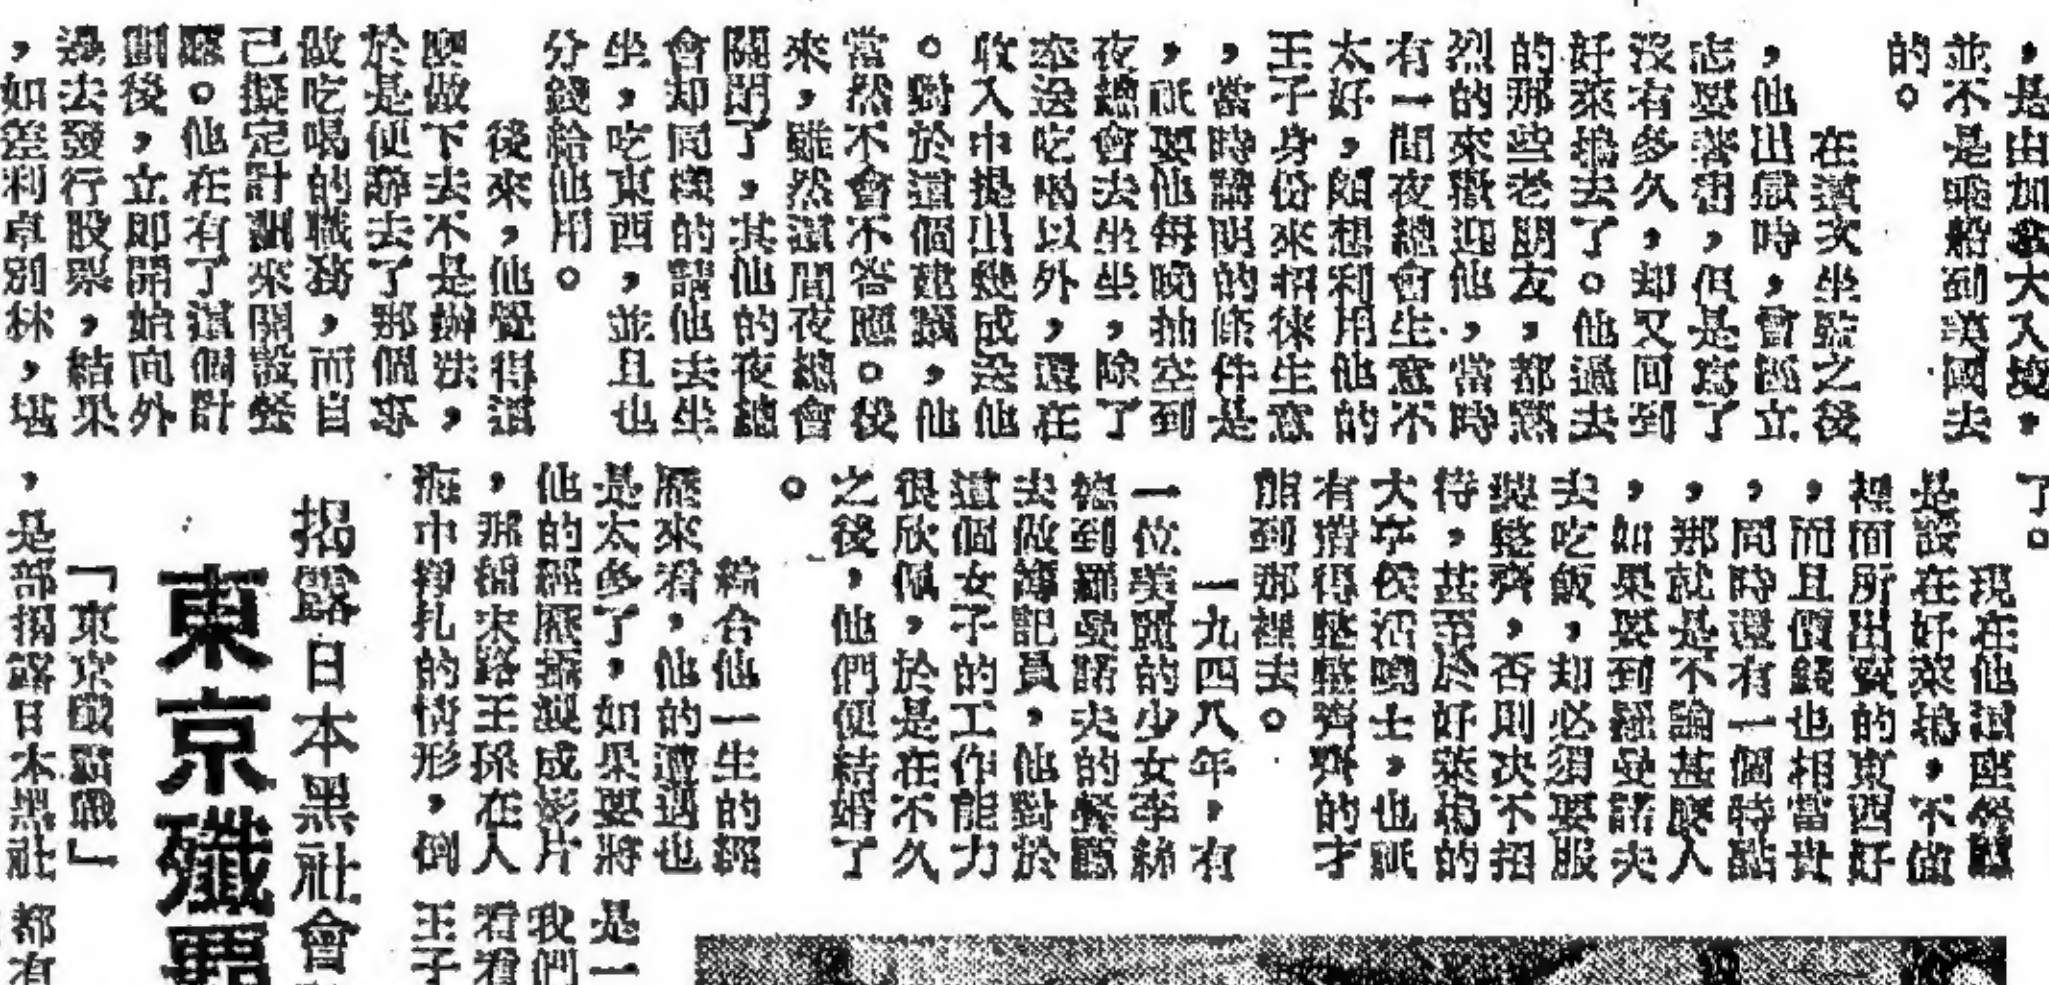 ，是由加拿大入境，
並不是乘船到美國去
的。
在這次坐監之後
，他出獄時，曾經立
志要著書，但是寫了
沒有多久，却又回到
好萊塢去了。他過去
的那些老朋友，都熱
烈的來歡迎他，當時
有一間夜總會生意不
太好，頗想利用他的
王子身份來招徠生意
，當時講明的條件是
，祇要他每晚抽空到
夜總會去坐坐，除了
來送吃喝以外，還在
收入中提出幾成送他
。對於這個建議，他
當然不會不答應。後
來，雖然這間夜總會
關閉了，其他的夜總
會却同樣的請他去坐
坐，吃東西，並且也
分錢給他用。
後來，他覺得這
麼做下去不是辦法，
於是便辭去了那個專
做吃喝的職務，而自
己擬定計劃來開設餐
廳。他在有了這個計
劃後，立即開始向外
邊去發行股票，結果
，如差利卓別林，
了。
現在他這座餐廳
是設在好萊塢，不但
裡面所出賣的東西好
，而且價錢也相當貴
，同時還有一個特點
，那就是不論甚麼人
，如果要到羅曼諾夫
去吃飯，却必須要服
裝整齊，否則決不招
待，甚至於好萊塢的
大亨侯活曉士，也祇
有穿得整整齊齊的才
能到那裡去。
一九四八年，有
一位美麗的少女
到羅曼諾夫的餐廳
去做簿記員，他對於
這個女子的工作能力
很欣佩，於是在不久
之後，他們便結婚了
。
綜合他一生的經
歷來看，他的遭遇也
是太多了，如果要將
他的經歷攝製成影片
，那個末路王孫在人
海中掙扎的情形，倒
是一
我們
看看
王子
揭露日本黑社會
東京殲霸
「東京殲霸戰」
，是部揭露日本黑社
都有